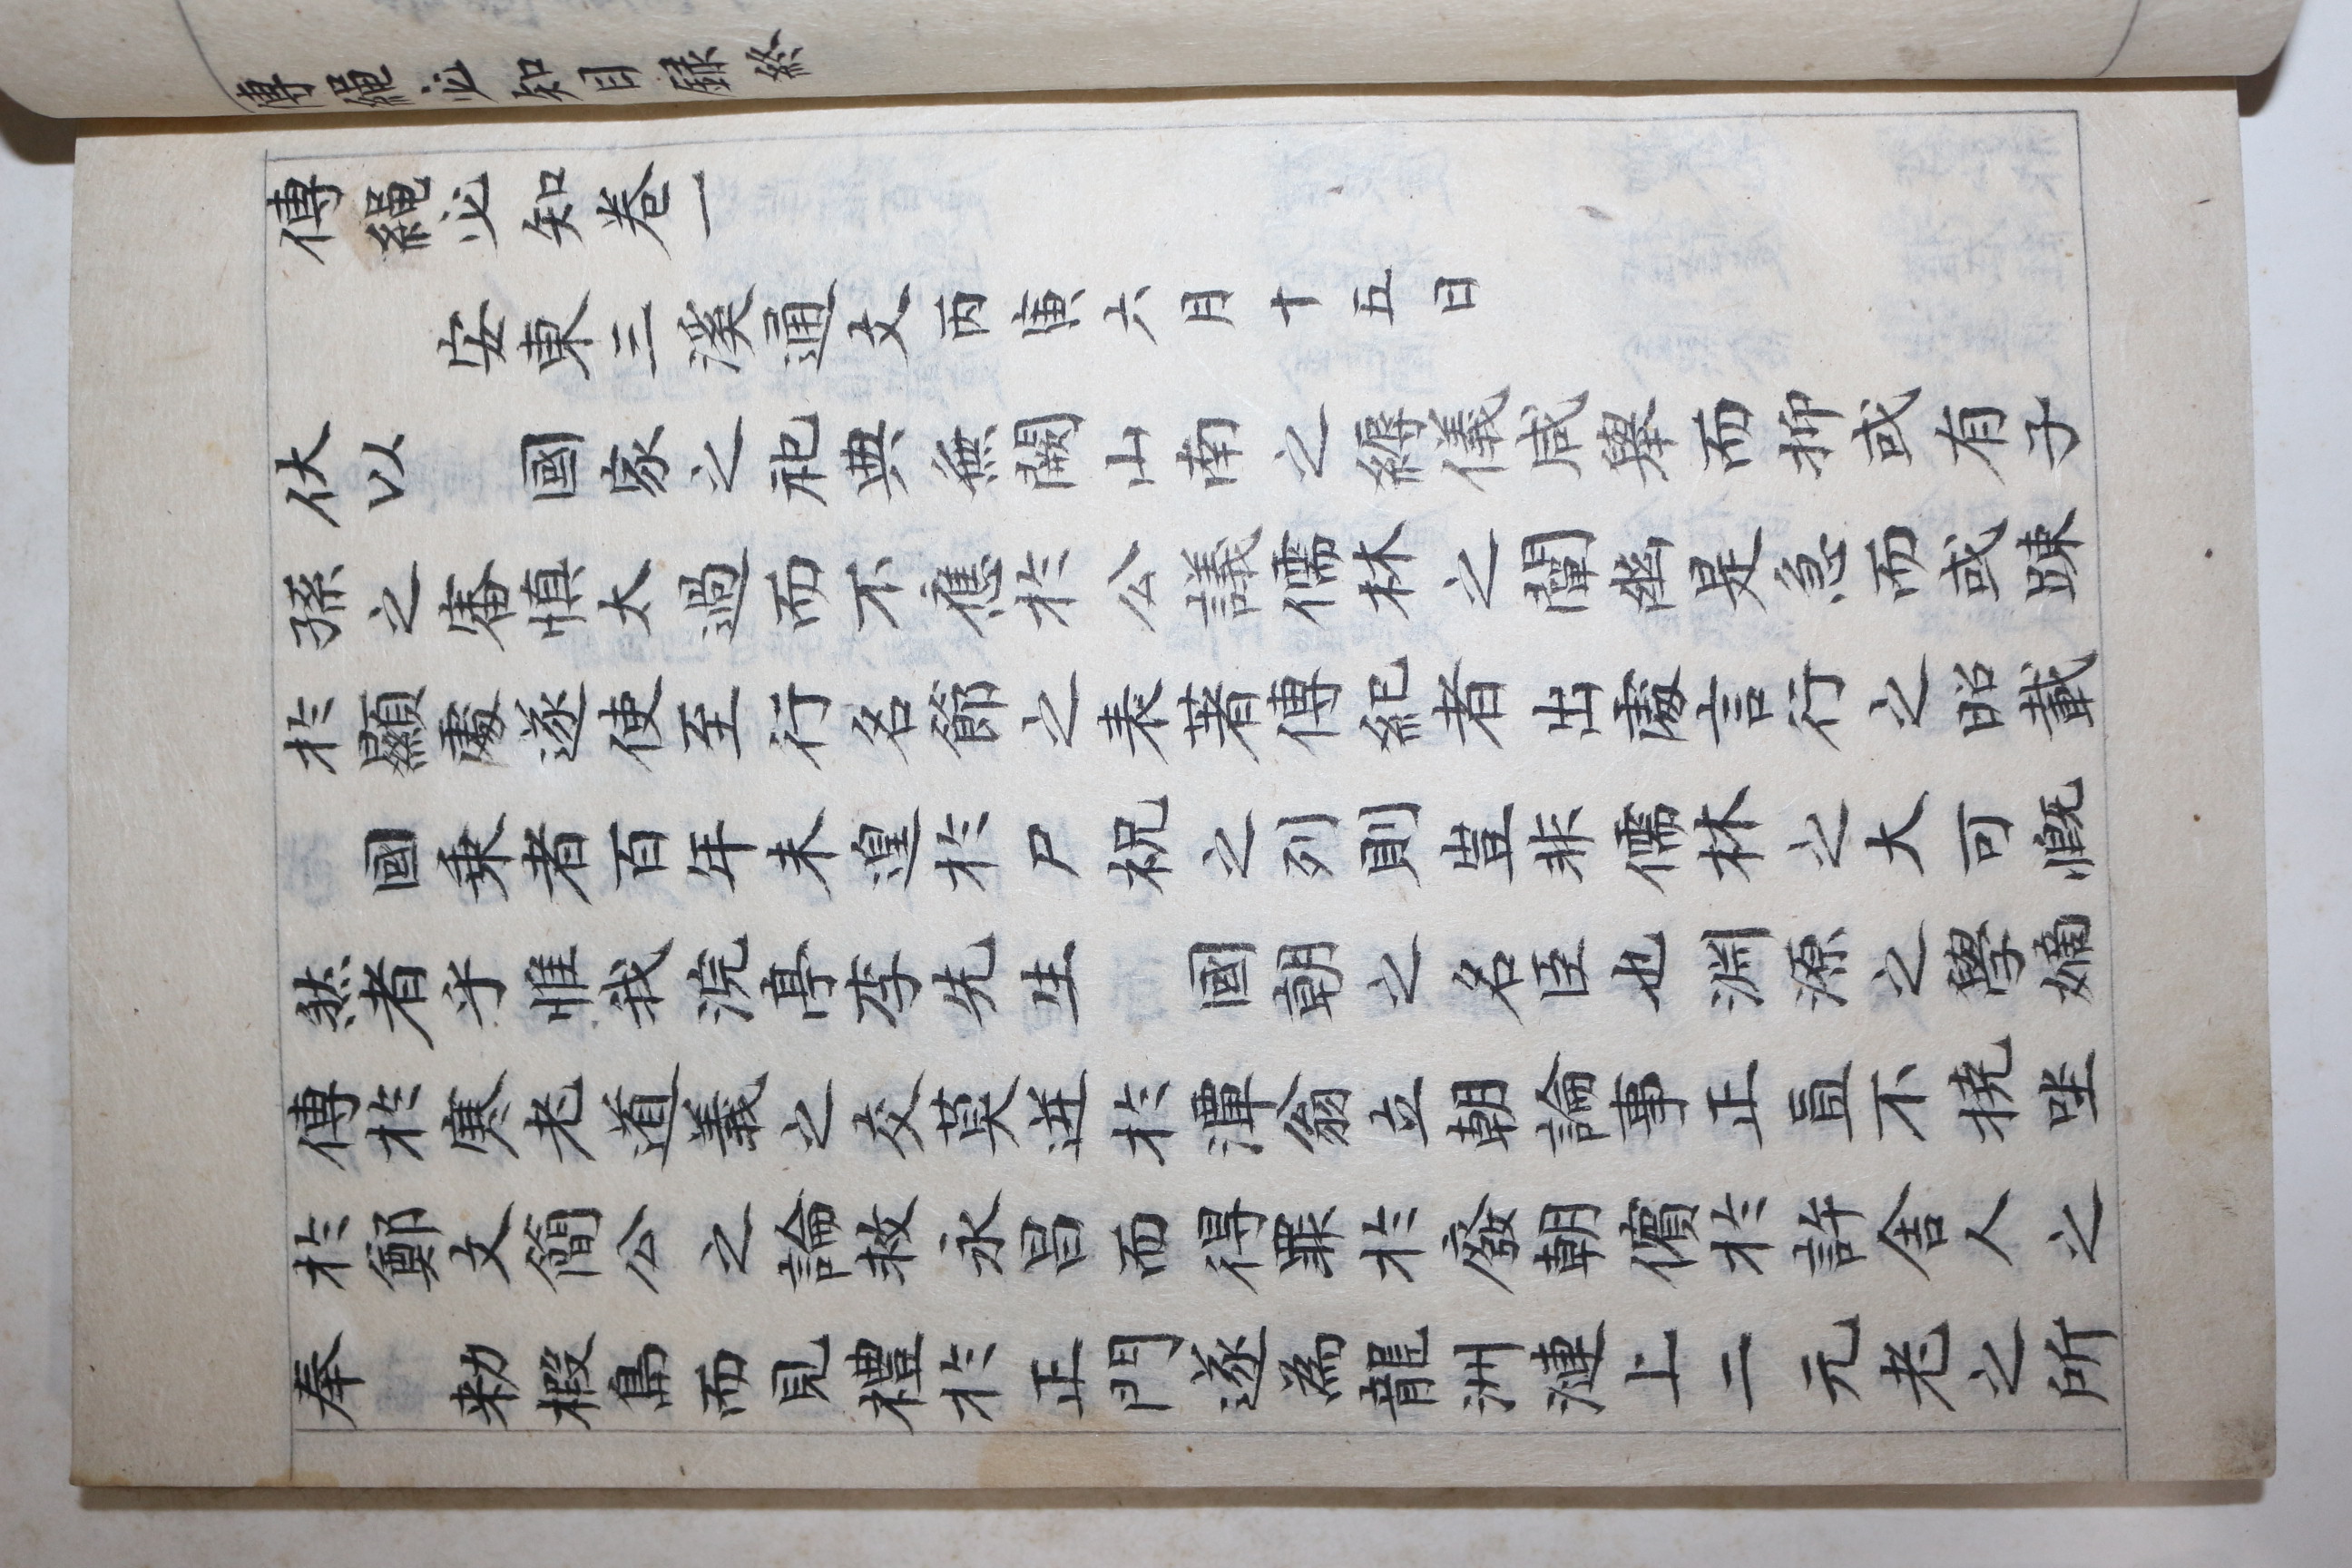 傳繩必知目録終
傳繩必知卷一
安東三溪通文丙寅六月十五日
伏以 國家之祀典無闕山南之縟儀咸擧而抑或有子
孫之審愼太過而不應於公議儒林之闡幽是急而或踈
於顯處遂使至行名節之表著傳紀者出處言行之昭載
國乗者百年未遑於尸祝之列則豈非儒林之大可慨
然者乎惟我浣亭李先生 國朝之名臣也淵源之學嫡
傳於寒老道義之交莫逆於潭翁立朝論事正直不撓坐
於鄭文簡公之論救永昌而得罪於廢朝儐於許舍人之
奉 勅椵島而見禮於正門遂為龍洲漣上二元老之所